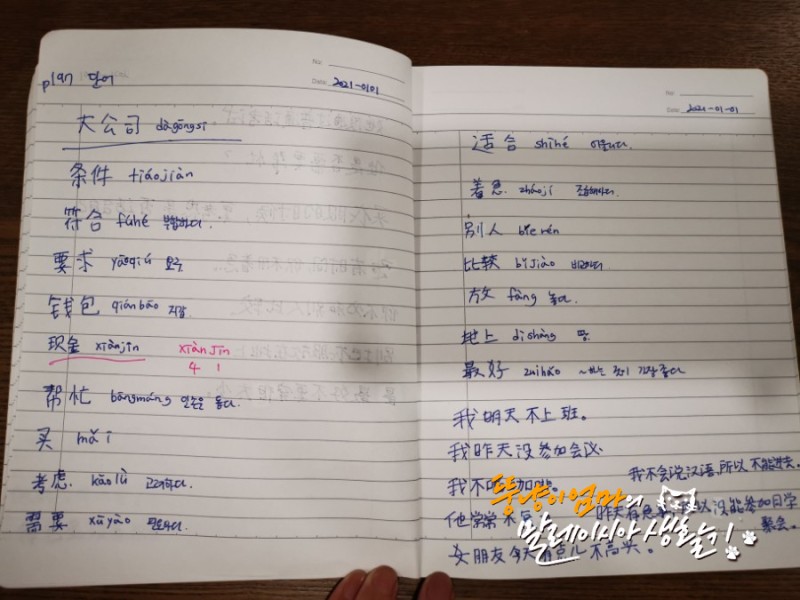 No:
Date 2021-01-01
plan 단어
大公司 dàgōngsī
条件 tiáojiàn
符合 fúhé 부합하다.
要求 yāoqiú 요구
钱包 qiánbāo 지갑
现金 xiànjīn xiànjīn
4 1
帮忙 bāngmáng 일손을 돕다.
买 mǎi
考虑 kǎolǜ 고려하다.
需要 xūyào 필요하다.
No:
Date 2021-01-01
适合 shìhé 어울리다.
着急 zháojí 조급해하다.
别人 biérén
比较 bǐjiào 비교하다.
放 fàng 놓다.
地上 dìshàng 땅.
最好 zuìhǎo ~하는 것이 가장 좋다
我明天不上班。
我昨天没参加会议.
我不会说汉语,所以不能进去.
我不
他常常不
昨天有 以没能参加同学
聚会.
女朋友今天有点儿不高兴。
뚱냥이엄마의
말레이시아 생활기!